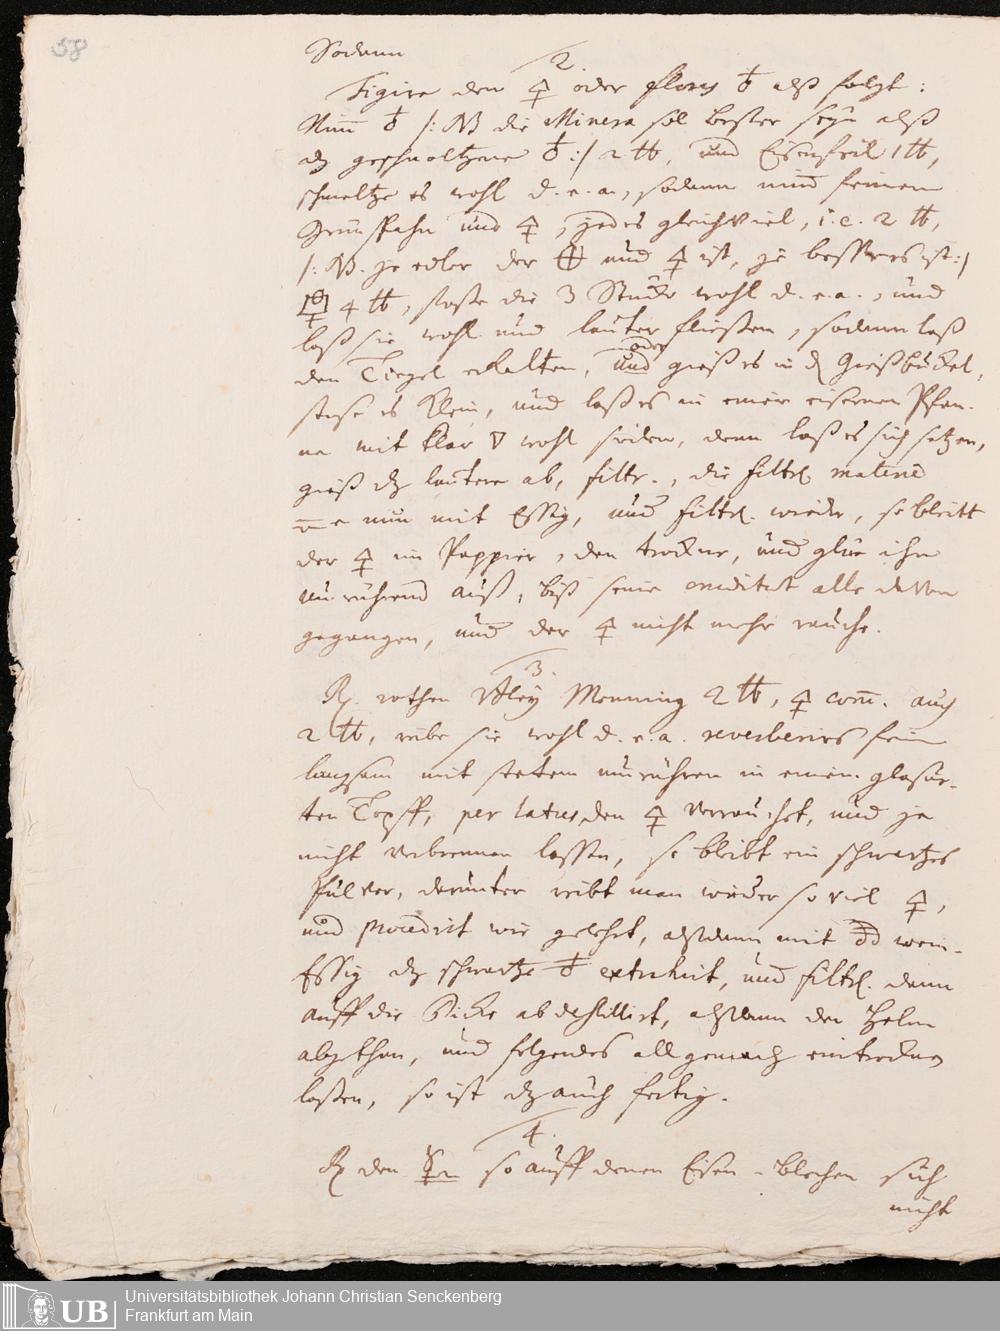 58
Sodann
2.
Figire den 🜍 oder flores ♁ alß folgt:
Nim̄ ♁ /: NB die Minera sol besser seÿn alß
dz geschmoltzene ♁ :/ 2 ℔, und Eisenfeil 1 ℔,
schmeltze es wohl d. e. a., sodann nim̄ feinen
Grünspahn und 🜍, jedes gleichviel, i. e. 2 ℔,
/: NB. je edler der und 🜍 ist, je besser es ist :/
4 ℔, stoße die 3 Stück wohl d. e. a., und
laß sie wohl und lauter fließen, sodann laß
den Tiegel erkalten, und oder gieß es in d Gießbuckel,
stoße es klein, und laß es in einer eisernen Pfan-
ne mit klar ▽ wohl sieden, denn laß es sich setzen,
gieß dz lautere ab, filtr., die filtr. materie
nun mit Essig, und filtr. wieder, so bleibt
der 🜍 im Pappier, den trockne, und glüe ihn
umrührend auß, biß seine alle davon
gegangen, und der 🜍 nicht mehr rauche.
3.
℞. rothen Bleÿ Menning 2 ℔, 🜍 com̄. auch
2 ℔, reibe sie wohl d. e. a. reverberirs fein
langsam mit stetem umrühren in einem glasur-
ten Topff, per latus, den 🜍 verrauchet, und ja
nicht verbrennen lassen, so bleibt ein schwartzes
Pulver, darunter reibt man wieder so viel 🜍,
und procedirt wie gelehrt, alßdann mit wein-
Essig dz schwartze extrahirt, und filtr. dann
auff die Dicke abdestillirt, alßdann den Helm
abgethan, und folgendes allgemach eintrocknen
laßen, so ist dz auch fertig.
4.
℞ den so auff denen Eisen-blechen sich
nicht
UB
Universitätsbibliothek Johann Christian Senckenberg
Frankfurt am Main